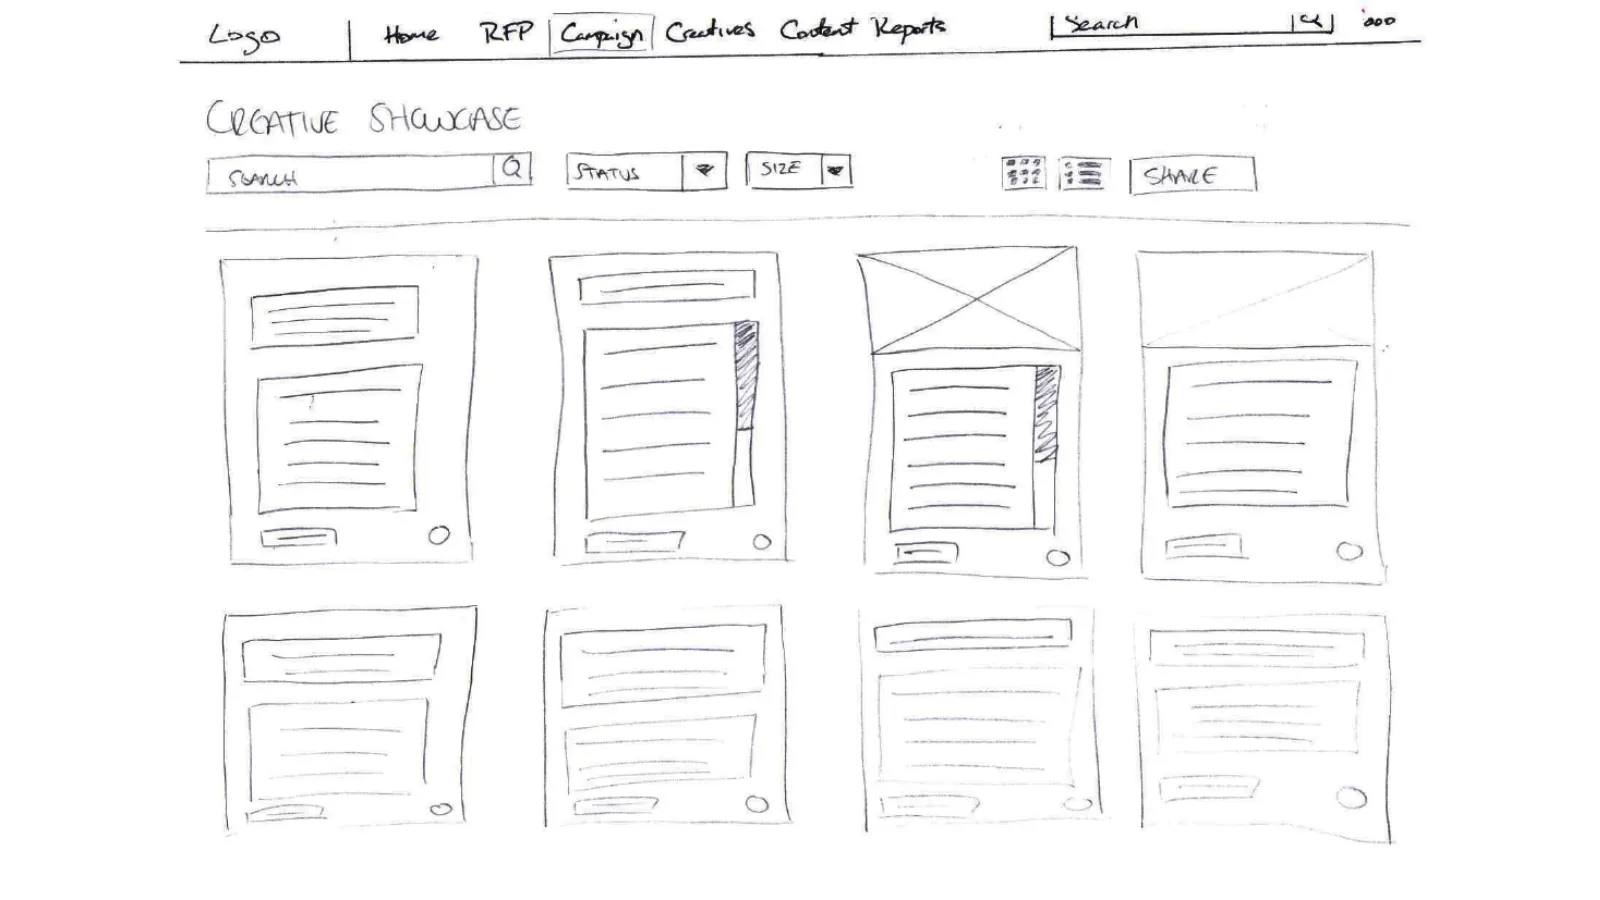 Logo Home RFP Campaign Creatives Content Reports Search
CREATIVE SHOWCASE
SEARCH STATUS SIZE SHARE